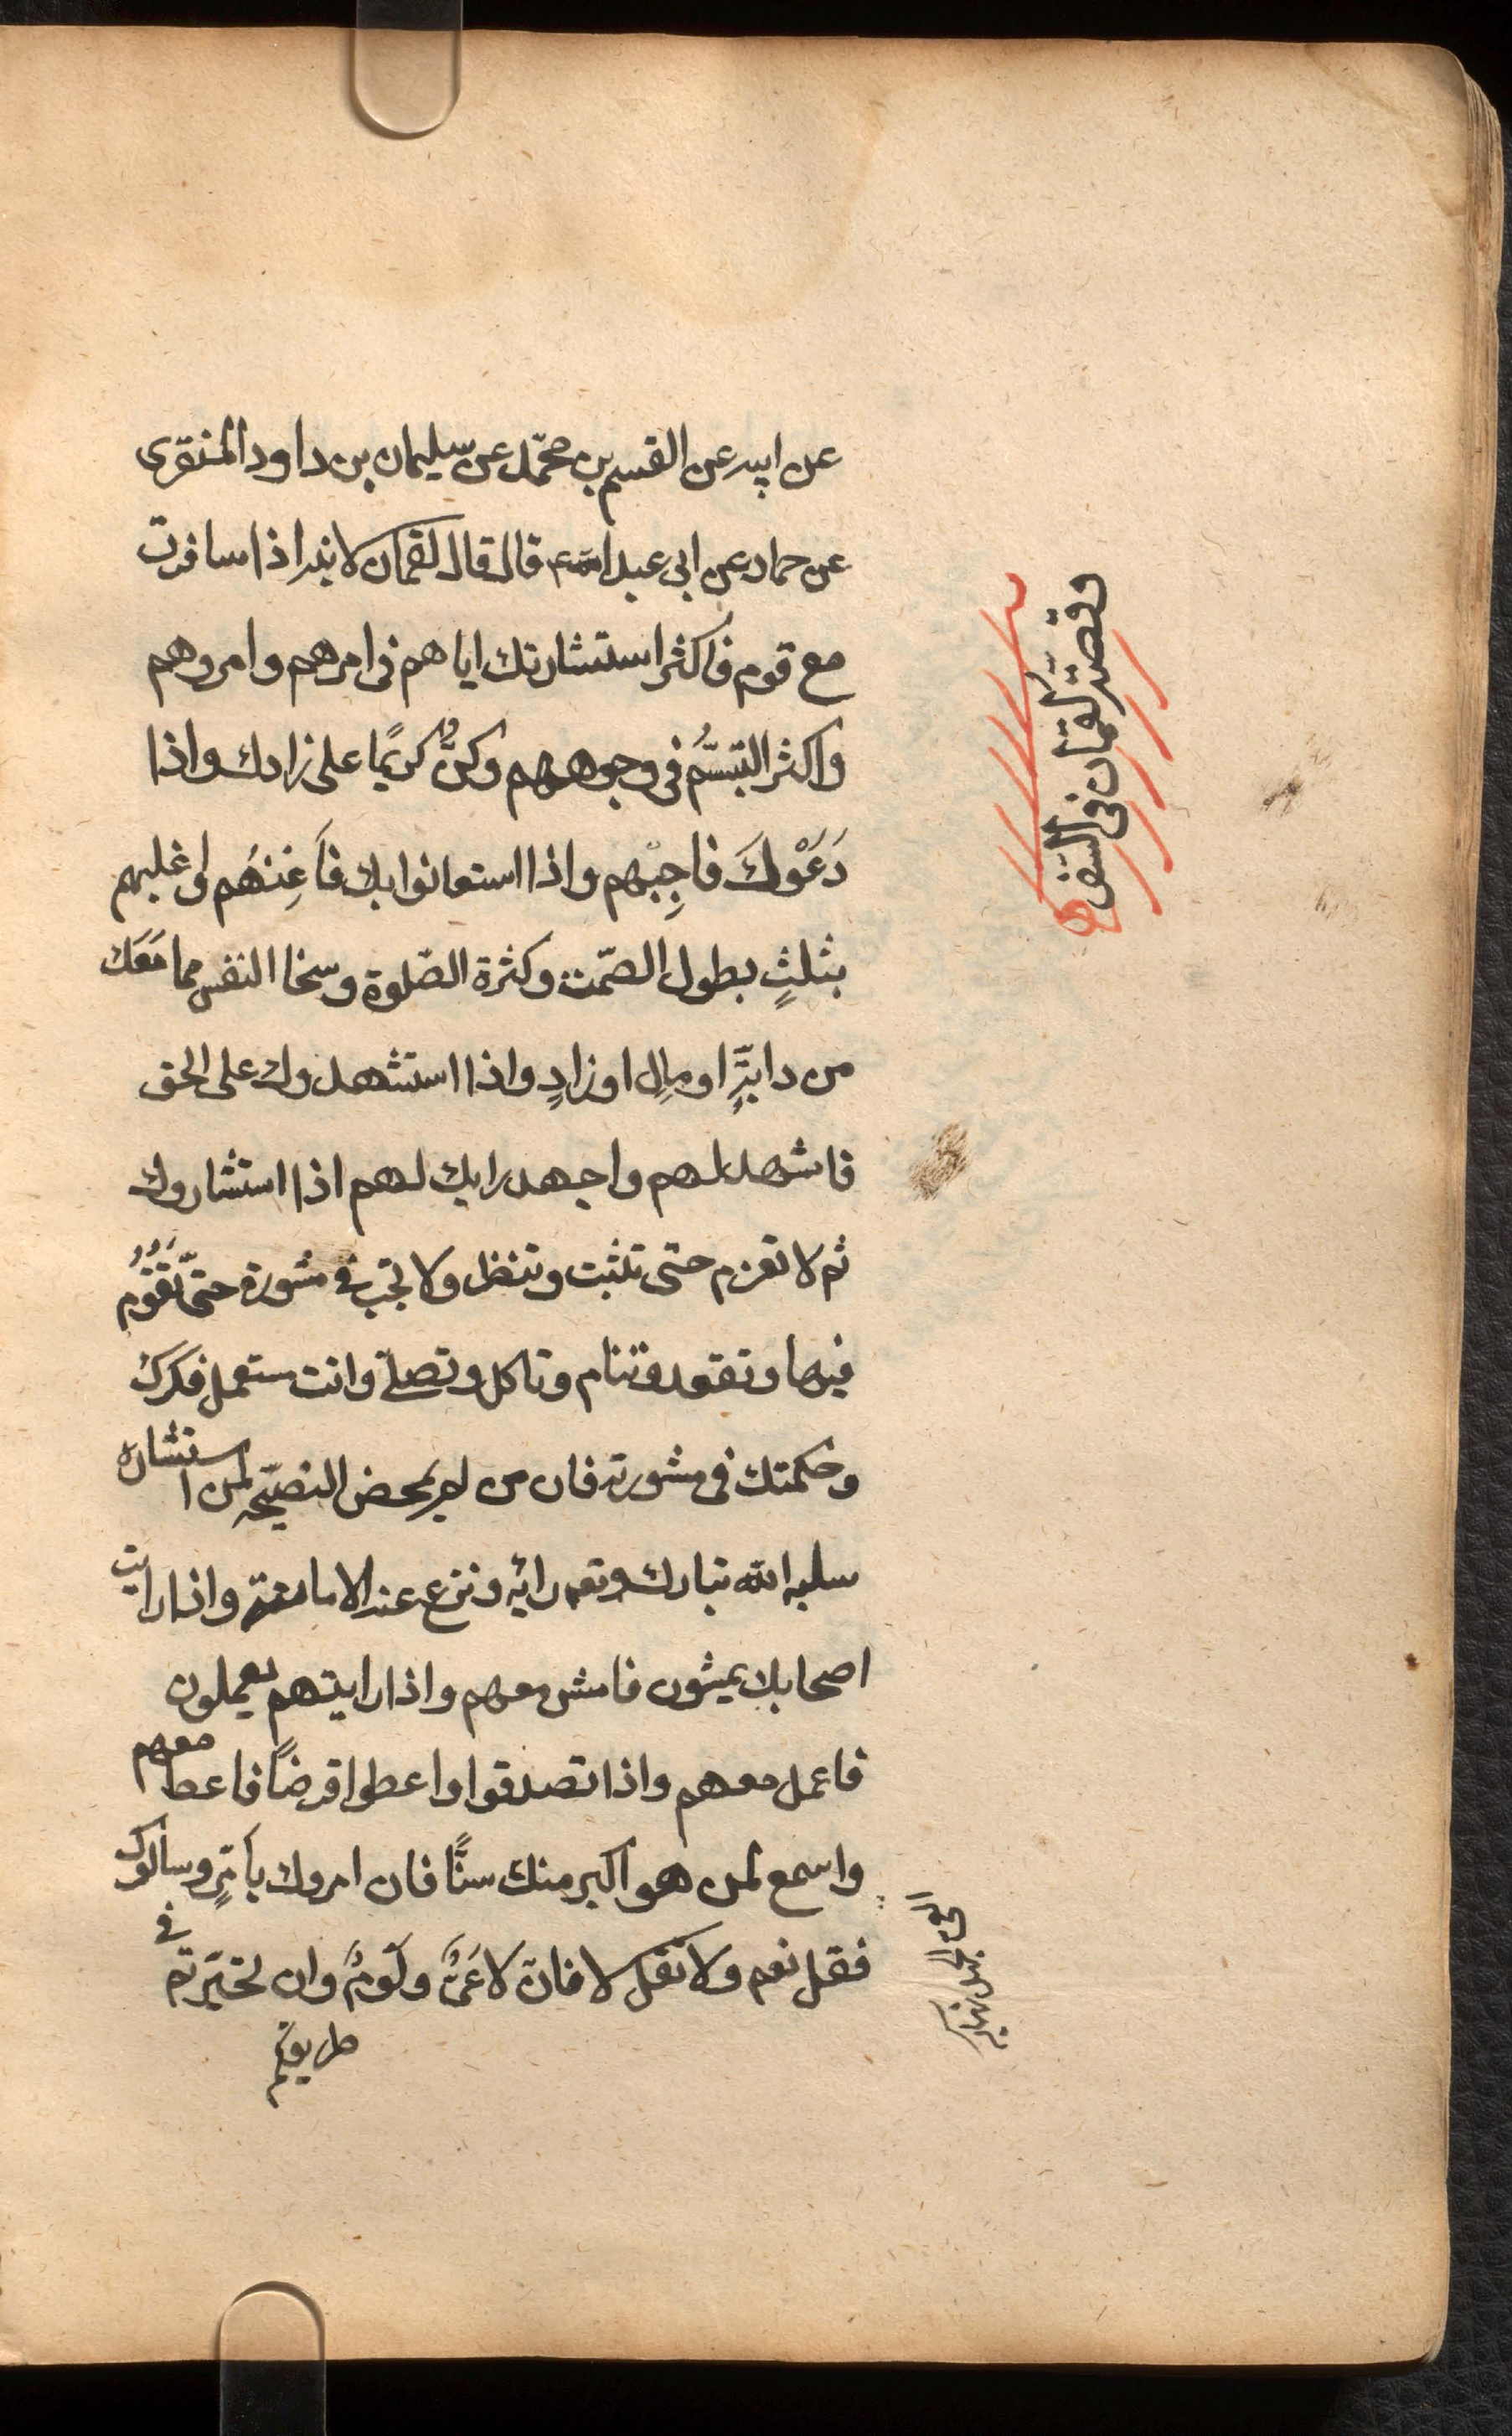 عن ابيه عن القسم بن محمّد عن سليمان بن داود المنقرى
عن حماد عن ابى عبد الله ع قال قال لقمان لابنه اذا سافرت
مع قوم فاكثر استشارتك اياهم فى امرهم وامروهم
واكثر التبسّمُ فى وجوههم وكنْ كريمًا على زادك واذا
دَعَوْكَ فاجِبْهم واذا استعانوا بك فاَعِنهُم واغلبهم
بثلثٍ بطول الصّمت وكثرة الصّلوة وسخا النفس مما مَعَك
من دابّةٍ او مالٍ او زادٍ واذا استشهدوك على الحق
فاشهد لهم واجهد رايك لهم اذا استشاروك
ثم لا تعزم حتى تثبت وتنظر ولا تجب فى مشورة حتّى تَقُوُم
فيها وتقعد وتنام وتاكل وتصلّى وانت ستعمل فكرك
وحكمتك فى مشورته فان من لم يمحض النصيّحه لمن استشاره
سلبه الله تبارك وتعه رائه ونزع عنه الامانة واذا رايت
اصحابك يمشون فامش معهم واذا رايتهم يعملون
فاعمل معهم واذا تصدقوا واعطوا قرضاً فاعط معهم
واسمع لمن هو اكبر منك سنًّا فان امروك بأمرٍ وسألوك
فقل نعم ولا تقل لا فان لا عَىٌّ ولَومٌ وان تحيّرتم فى
طريقكم
وقصّة لقمان فى السّفر